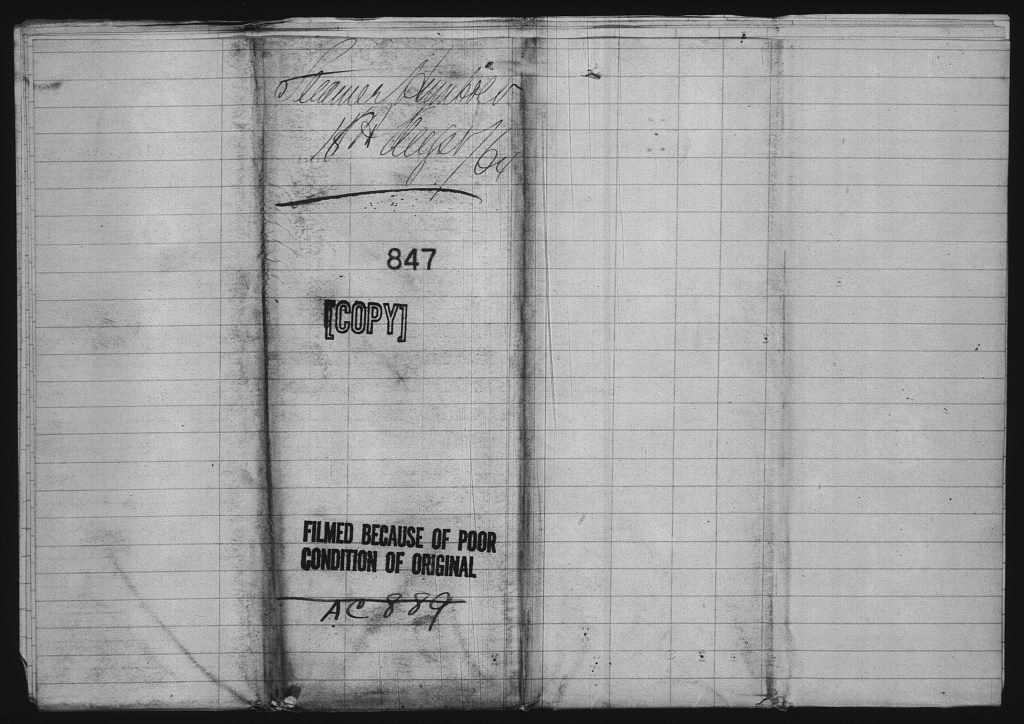 Steamer
18th Augst /64
847
[COPY]
FILMED BECAUSE OF POOR
CONDITION OF ORIGINAL
AC 889